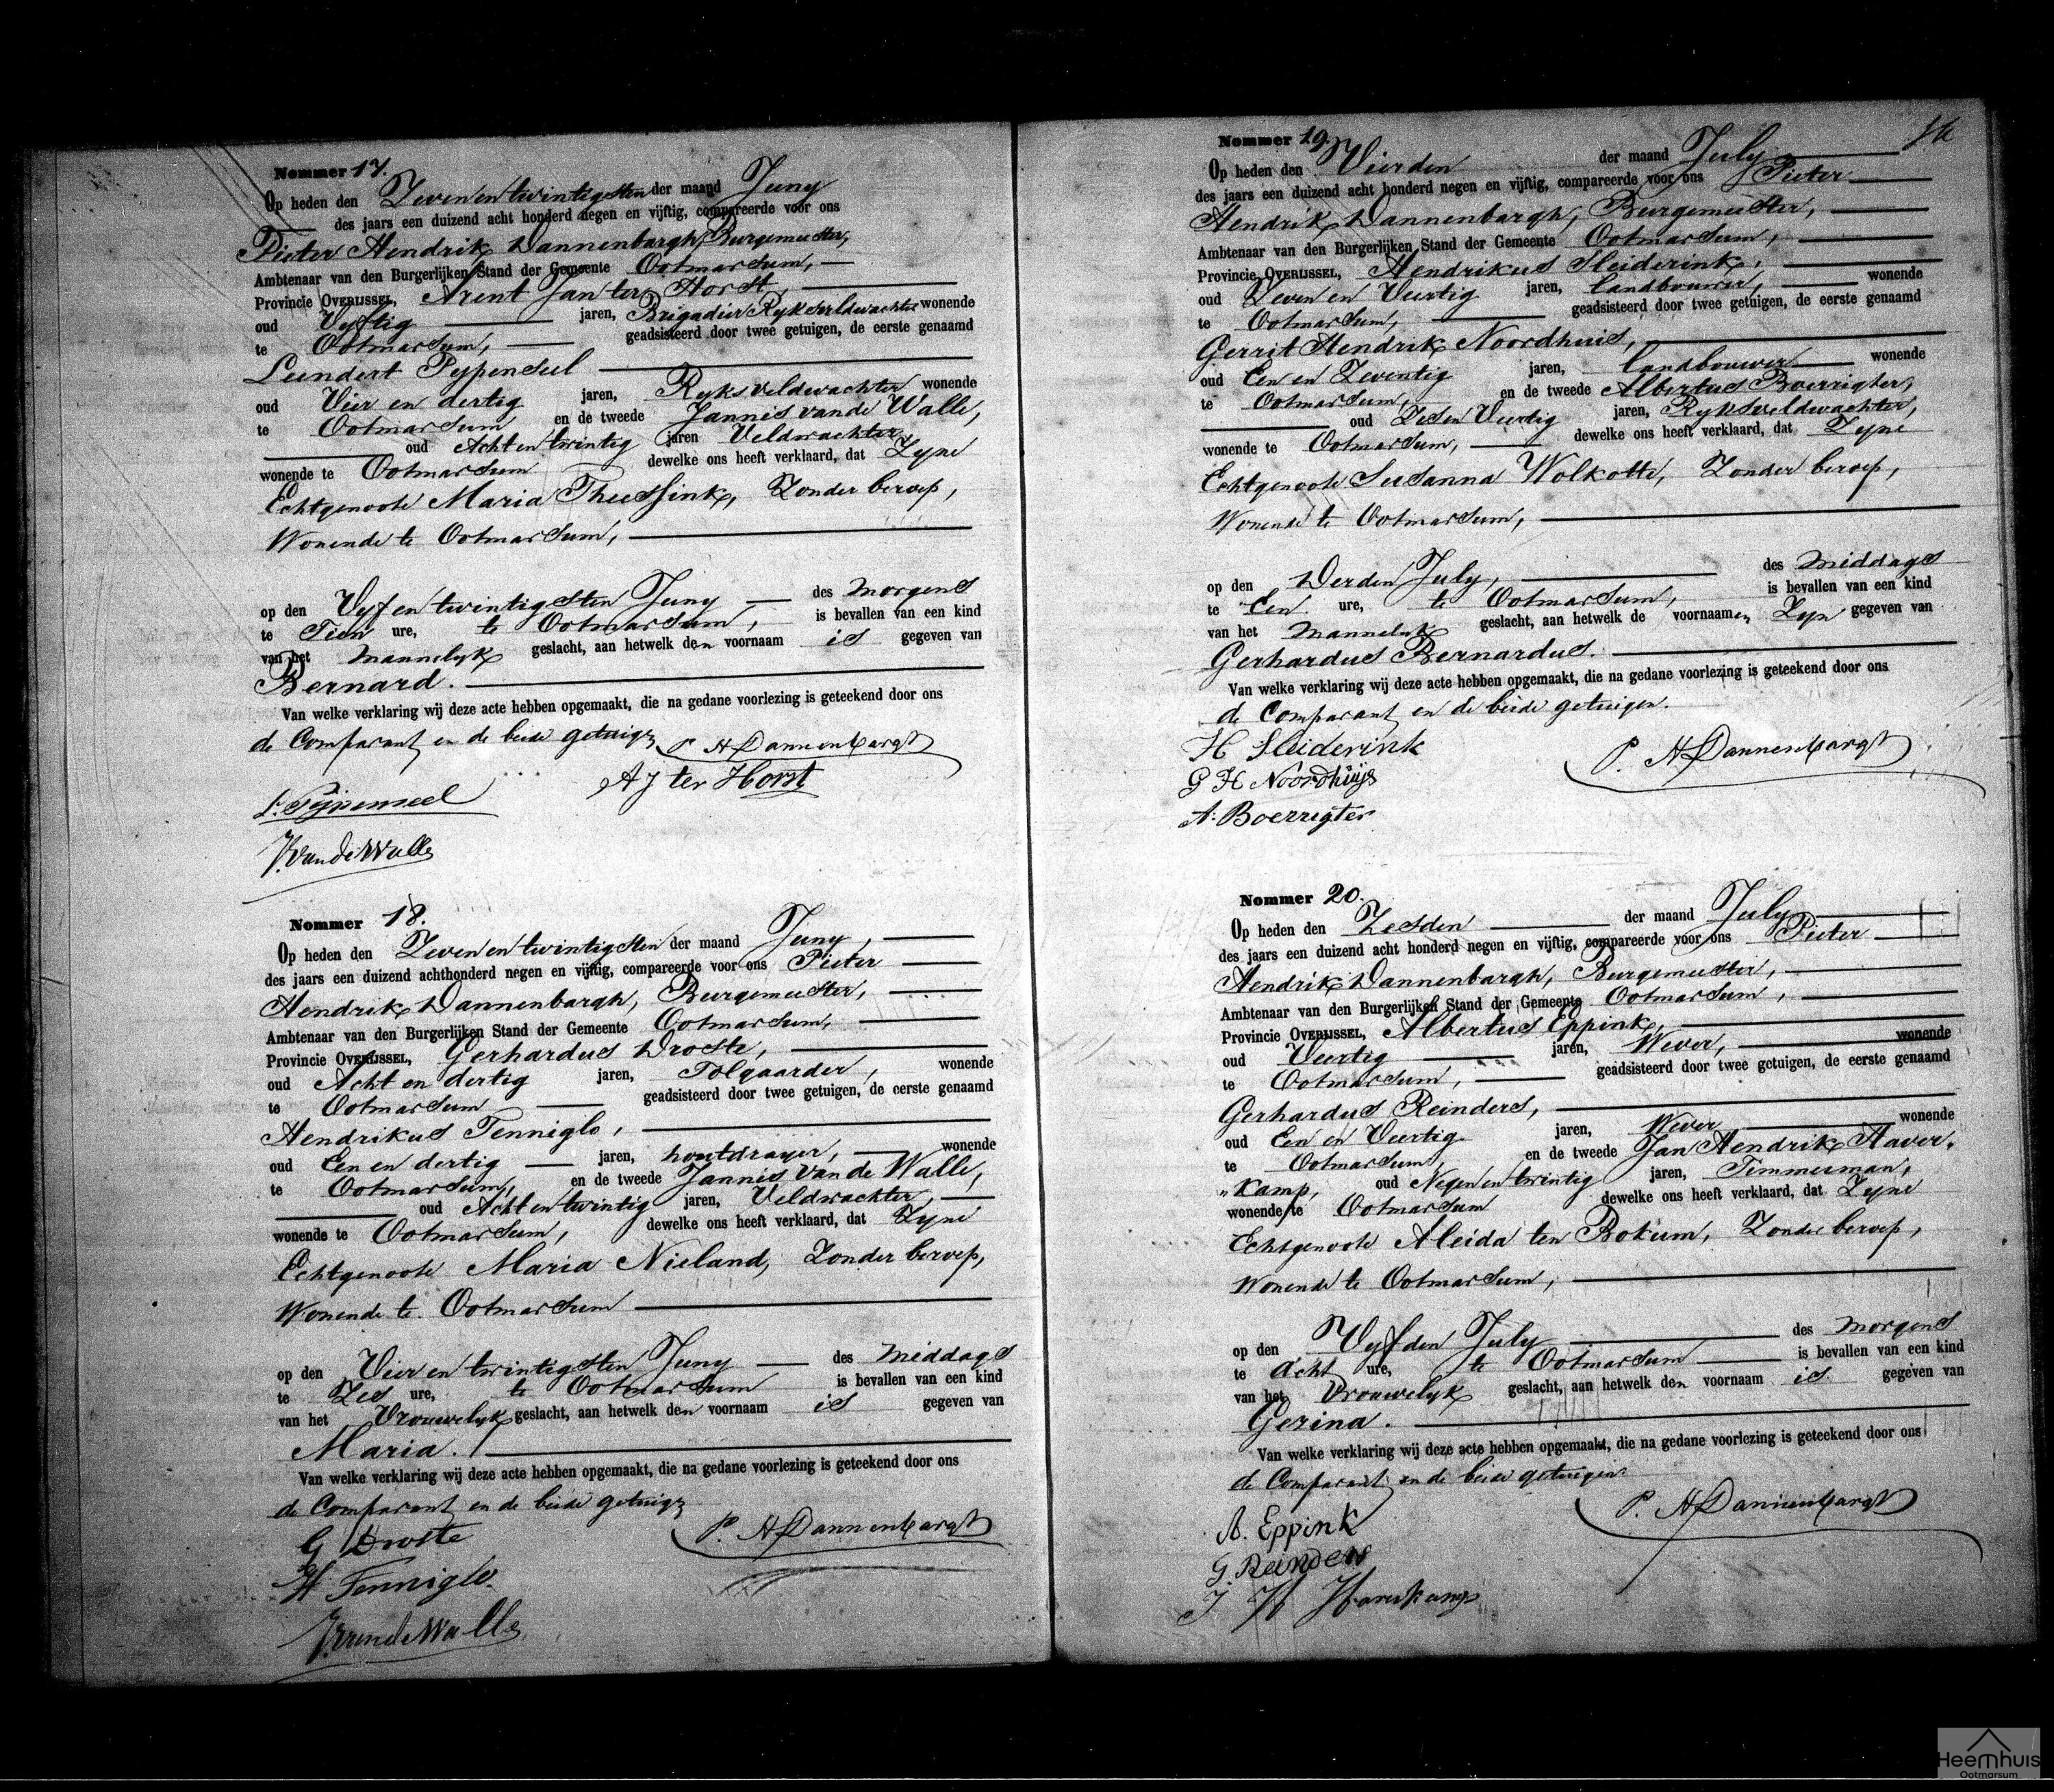 Nommer 17.
Op heden den Zeven en twintigsten der maand Juny
des jaars een duizend acht honderd negen en vijftig, compareerde voor ons
Pieter Hendrik Dannenbargh, Burgemeester,
Ambtenaar van den Burgerlijken Stand der Gemeente Ootmarsum,
Provincie Overijssel, Arent Jan ter Horst,
oud Vyftig jaren, Brigadier Ryksveldwachter wonende
te Ootmarsum, geadsisteerd door twee getuigen, de eerste genaamd
Leendert Pypenseel
oud Vier en dertig jaren, Ryksveldwachter wonende
te Ootmarsum en de tweede Jannis van de Walle,
oud Acht en twintig jaren Veldwachter,
wonende te Ootmarsum dewelke ons heeft verklaard, dat Zyne
Echtgenoote Maria Theussink, Zonder beroep,
Wonende te Ootmarsum,
op den Vyf en twintigsten Juny des Morgens
te Tien ure, te Ootmarsum, is bevallen van een kind
van het Mannelyk geslacht, aan hetwelk den voornaam is gegeven van
Bernard.
Van welke verklaring wij deze acte hebben opgemaakt, die na gedane voorlezing is geteekend door ons
de Comparant en de beide getuig. P. H. Dannenbargh
A J ter Horst
L. Pijpenseel
J. van de Walle
Nommer 18.
Op heden den Zeven en twintigsten der maand Juny,
des jaars een duizend achthonderd negen en vijftig, compareerde voor ons Pieter
Hendrik Dannenbargh, Burgemeester,
Ambtenaar van den Burgerlijken Stand der Gemeente Ootmarsum,
Provincie Overijssel, Gerhardus Droste,
oud Acht en dertig jaren, Tolgaarder, wonende
te Ootmarsum geadsisteerd door twee getuigen, de eerste genaamd
Hendrikus Tenniglo,
oud Een en dertig jaren, houtdrayer, wonende
te Ootmarsum, en de tweede Jannis van de Walle,
oud Acht en twintig jaren, Veldwachter,
wonende te Ootmarsum, dewelke ons heeft verklaard, dat Zyne
Echtgenoote Maria Nieland, Zonder beroep,
Wonende te Ootmarsum
op den Vier en twintigsten Juny des Middags
te Zes ure, te Ootmarsum is bevallen van een kind
van het Vrouwelyk geslacht, aan hetwelk den voornaam is gegeven van
Maria.
Van welke verklaring wij deze acte hebben opgemaakt, die na gedane voorlezing is geteekend door ons
de Comparant en de beide getuig.
G Droste P. H. Dannenbargh
H Tenniglo.
J. van de Walle
Nommer 19.
Op heden den Vierden der maand July
des jaars een duizend acht honderd negen en vijftig, compareerde voor ons Pieter
Hendrik Dannenbargh, Burgemeester,
Ambtenaar van den Burgerlijken Stand der Gemeente Ootmarsum,
Provincie Overijssel, Hendrikus Sleiderink,
oud Zeven en Veertig jaren, landbouwer, wonende
te Ootmarsum, geadsisteerd door twee getuigen, de eerste genaamd
Gerrit Hendrik Noordhuis,
oud Een en Zeventig jaren, landbouwer wonende
te Ootmarsum, en de tweede Albertus Boerrigter,
oud Zes en Veertig jaren, Ryksveldwachter,
wonende te Ootmarsum, dewelke ons heeft verklaard, dat Zyne
Echtgenoote Susanna Wolkotte, Zonder beroep,
Wonende te Ootmarsum,
op den Derden July, des Middags
te Een ure, te Ootmarsum, is bevallen van een kind
van het Mannelyk geslacht, aan hetwelk de voornaamen Zyn gegeven van
Gerhardus Bernardus.
Van welke verklaring wij deze acte hebben opgemaakt, die na gedane voorlezing is geteekend door ons
de Comparant en de beide getuigen.
H Sleiderink P. H. Dannenbargh
G H Noordhuijs
A. Boerrigter
Nommer 20.
Op heden den Zesden der maand July
des jaars een duizend acht honderd negen en vijftig, compareerde voor ons Pieter
Hendrik Dannenbargh, Burgemeester,
Ambtenaar van den Burgerlijken Stand der Gemeente Ootmarsum,
Provincie Overijssel, Albertus Eppink,
oud Veertig jaren, Wever, wonende
te Ootmarsum, geadsisteerd door twee getuigen, de eerste genaamd
Gerhardus Reinders,
oud Een en Veertig jaren, Wever wonende
te Ootmarsum, en de tweede Jan Hendrik Haver-
"kamp, oud Negen en twintig jaren, Timmerman,
wonende te Ootmarsum dewelke ons heeft verklaard, dat Zyne
Echtgenoote Aleida ten Bokum, Zonder beroep,
Wonende te Ootmarsum,
op den Vyfden July des Morgens
te Acht ure, te Ootmarsum is bevallen van een kind
van het Vrouwelyk geslacht, aan hetwelk den voornaam is gegeven van
Gerina.
Van welke verklaring wij deze acte hebben opgemaakt, die na gedane voorlezing is geteekend door ons
de Comparant en de beide getuigen
A. Eppink P. H. Dannenbargh
G Reinders
J H Haverkamp
Heemhuis
Ootmarsum